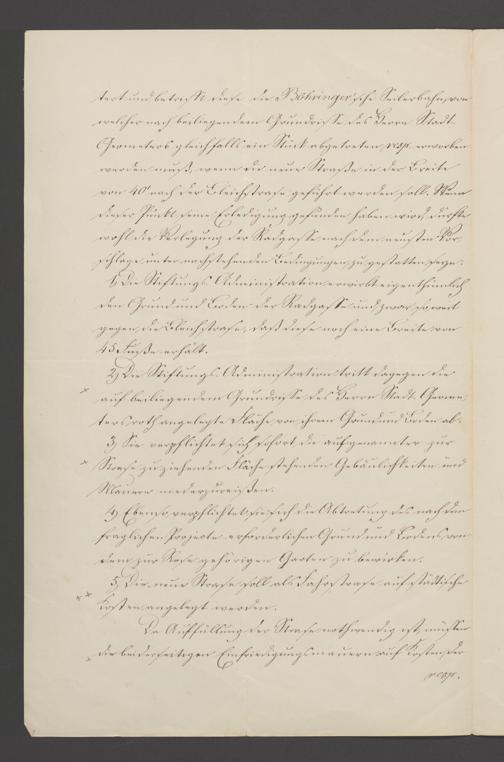 tert und betrifft diese die Böhringer'sche Seilerbahn, von
welcher nach beiliegendem Grundrisse des Herrn Stadt
Geometers gleichfalls ein Stück abgetreten resp. erworben
werden muß, wenn die neue Straße in der Breite
von 40' nach der Bleichstraße geführt werden soll. Wenn
dieser Punkt seine Erledigung gefunden haben wird, dürfte
wohl die Verlegung der Radgasse nach dem neusten Vor
schlage unter nachstehenden Bedingungen zu gestatten seyn:
1) Die Stiftungs Administration erwirbt eigenthümlich
den Grund und Boden der Radgasse und zwar so weit
gegen die Bleichstraße, daß diese noch eine Breite von
45 Fuße erhält.
2) Die Stiftungs Administration tritt dagegen die
auf beiliegendem Grundrisse des Herrn Stadt Geome-
ters roth angelegte Fläche von ihrem Grund und Boden ab.
3) Sie verpflichtet sich sofort die auf genannter zur
Straße zu ziehenden Fläche stehenden Gebäulichkeiten und
Mauern niederzureißen.
4) Ebenso verpflichtet sie sich die Abtretung des nach dem
fraglichen Projecte erforderlichen Grund und Bodens von
dem zur Rose gehörigen Garten zu bewirken.
5) Die neue Straße soll als Fahrstraße auf städtische
Kosten angelegt werden.
Da Auffüllung der Straße nothwendig ist, müssen
die beiderseitigen Einfriedigungsmauern auf Kosten der
resp.